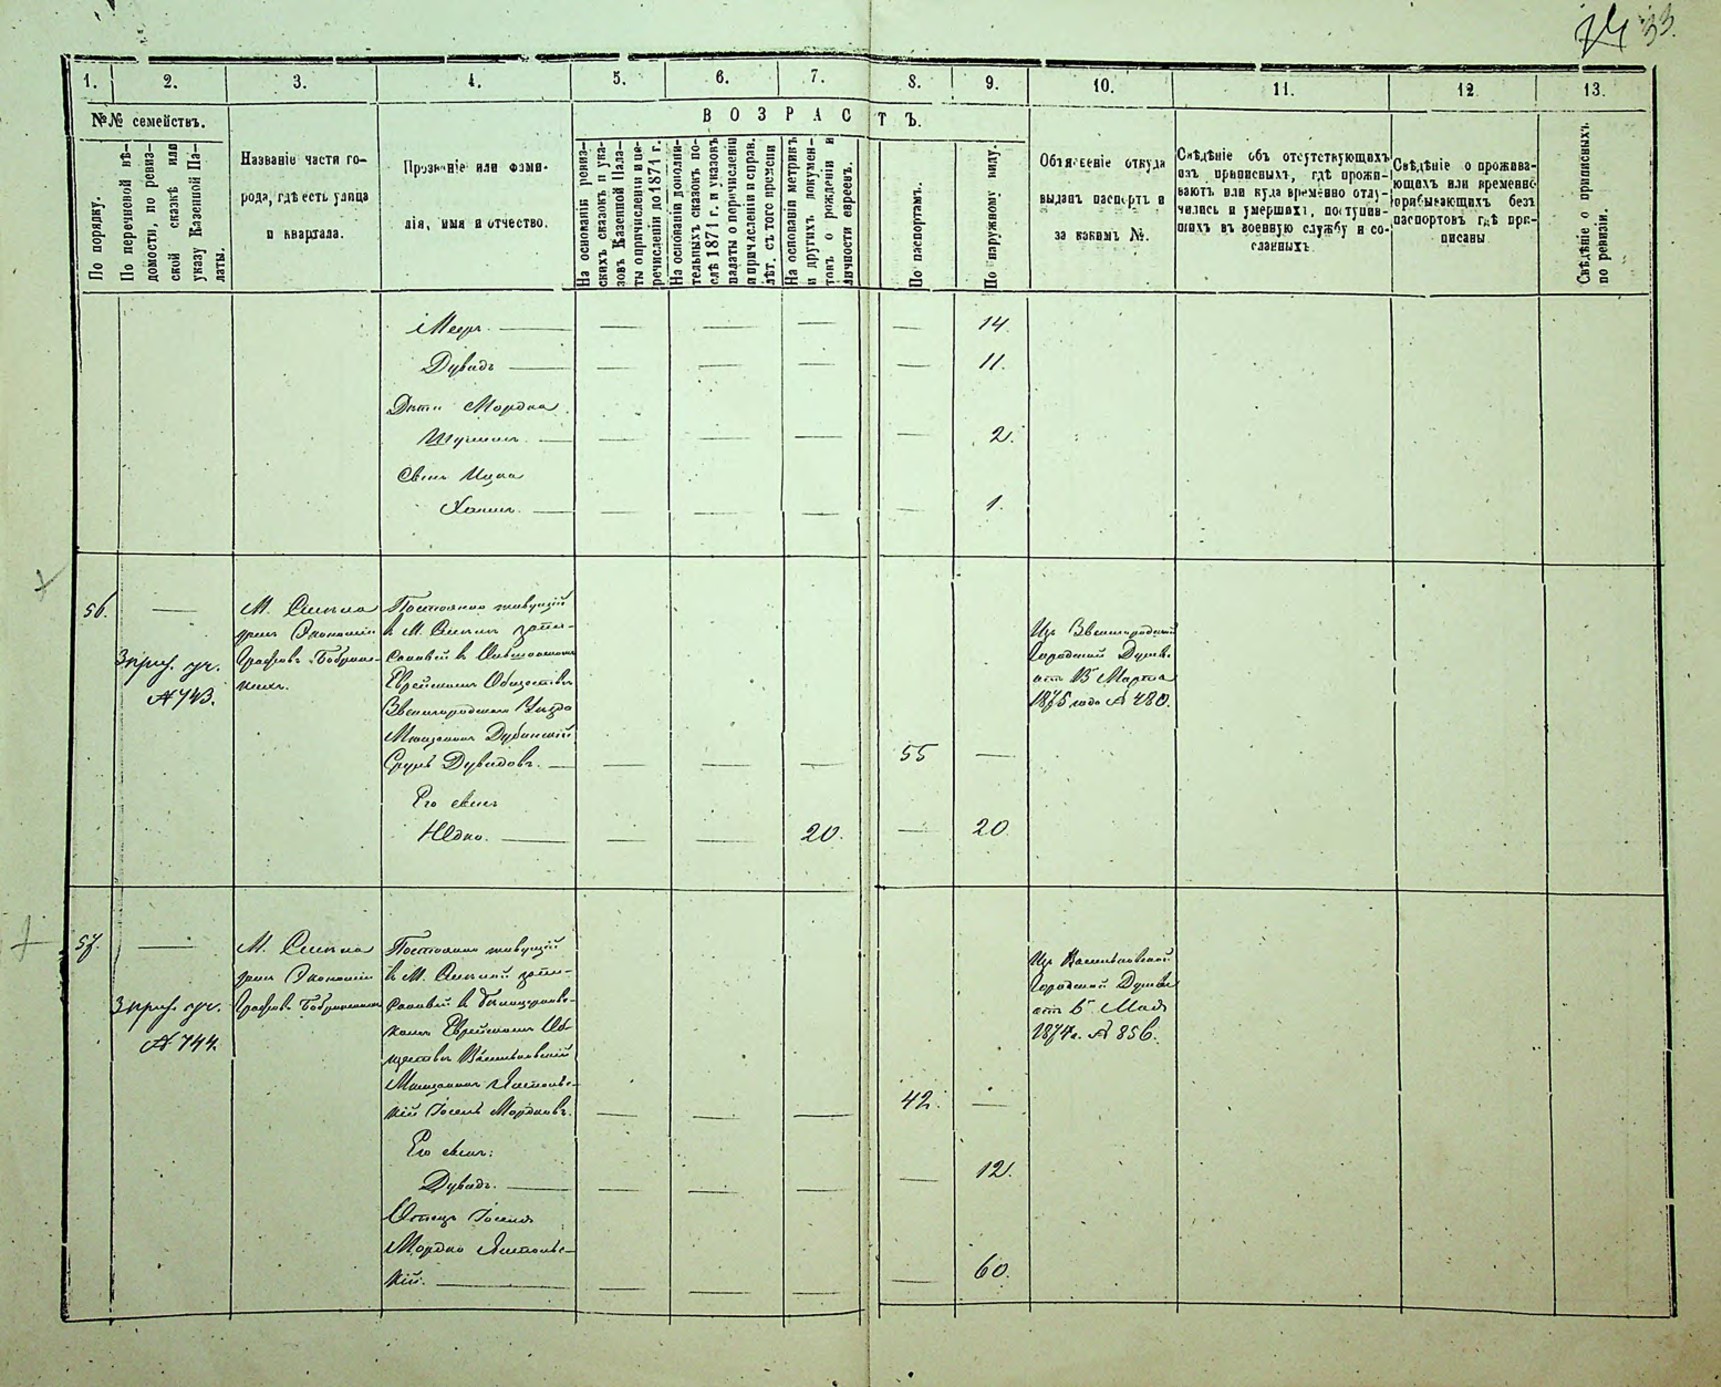 33.
1. 2. 3. 4. 5. 6. 7. 8. 9. 10. 11. 12 13.
№№ семействъ.
ВОЗРАСТЪ.
По порядку.
По перечневой вѣ-
домости, по ревиз-
ской сказкѣ или
указу Казенной Па-
латы.
Названіе части го-
рода, гдѣ есть улица
и квартала.
Прозваніе или фами-
лія, имя и отчество.
На основаніи ревиз-
скихъ сказокъ и ука-
зовъ Казенной Пала-
ты о причисленіи и пе-
речисленіи до 1871 г.
На основаніи дополни-
тельныхъ сказокъ по-
слѣ 1871 г. и указовъ
палаты о перечисленіи
и причисленіи и справ.
лѣт. съ того времени
На основаніи метрикъ
и другихъ докумен-
товъ о рожденіи и
личности евреевъ.
По паспортамъ.
По наружному виду.
Объясненіе откуда
выданъ паспортъ и
за какимъ №.
Свѣдѣніе объ отсутствующихъ
изъ приписныхъ, гдѣ прожи-
ваютъ или куда временно отлу-
чились и умершихъ, поступив-
шихъ въ военную службу и со-
сланныхъ
Свѣдѣніе о прожива-
ющихъ или временно
прибывающихъ безъ
паспортовъ гдѣ при-
писаны
Свѣдѣніе о приписныхъ
по ревизіи.
Меер. — — — — — 14.
Дувидъ — — — — — 11.
Дѣти Мордка
— — — — 2.
Сынъ Ицка
Хаимъ. — — — — — 1.
56. —
3 приз. уч.
№ 743.
М. Смѣла
домъ Экономіи
Графовъ Бобрин-
скихъ.
Постоянно живущій
въ М. Смѣлѣ запи-
санный въ
Еврейскомъ Обществѣ
Звенигородскаго Уѣзда
Мѣщанинъ
Сруль Дувидовъ. — — — — 55 —
Его сынъ
— — — 20. — 20.
Изъ Звенигородской
Городской Думы
отъ 13 Марта
1875 года № 480.
57. —
3 приз. уч.
№ 744.
М. Смѣла
домъ Экономіи
Графовъ Бобринскихъ
Постоянно живущій
въ М. Смѣлой запи-
санный въ Бѣлоцерков-
скомъ Еврейскомъ Об-
ществѣ Васильковскій
Мѣщанинъ
кій Іосель Мордковъ. — — — 42. —
Его сынъ:
Дувидъ. — — — — — 12.
Отецъ Іоселя
Мордко
кій. — — — — — 60.
Изъ Васильковской
Городской Думы
отъ 6 Мая
1874 г. № 856.